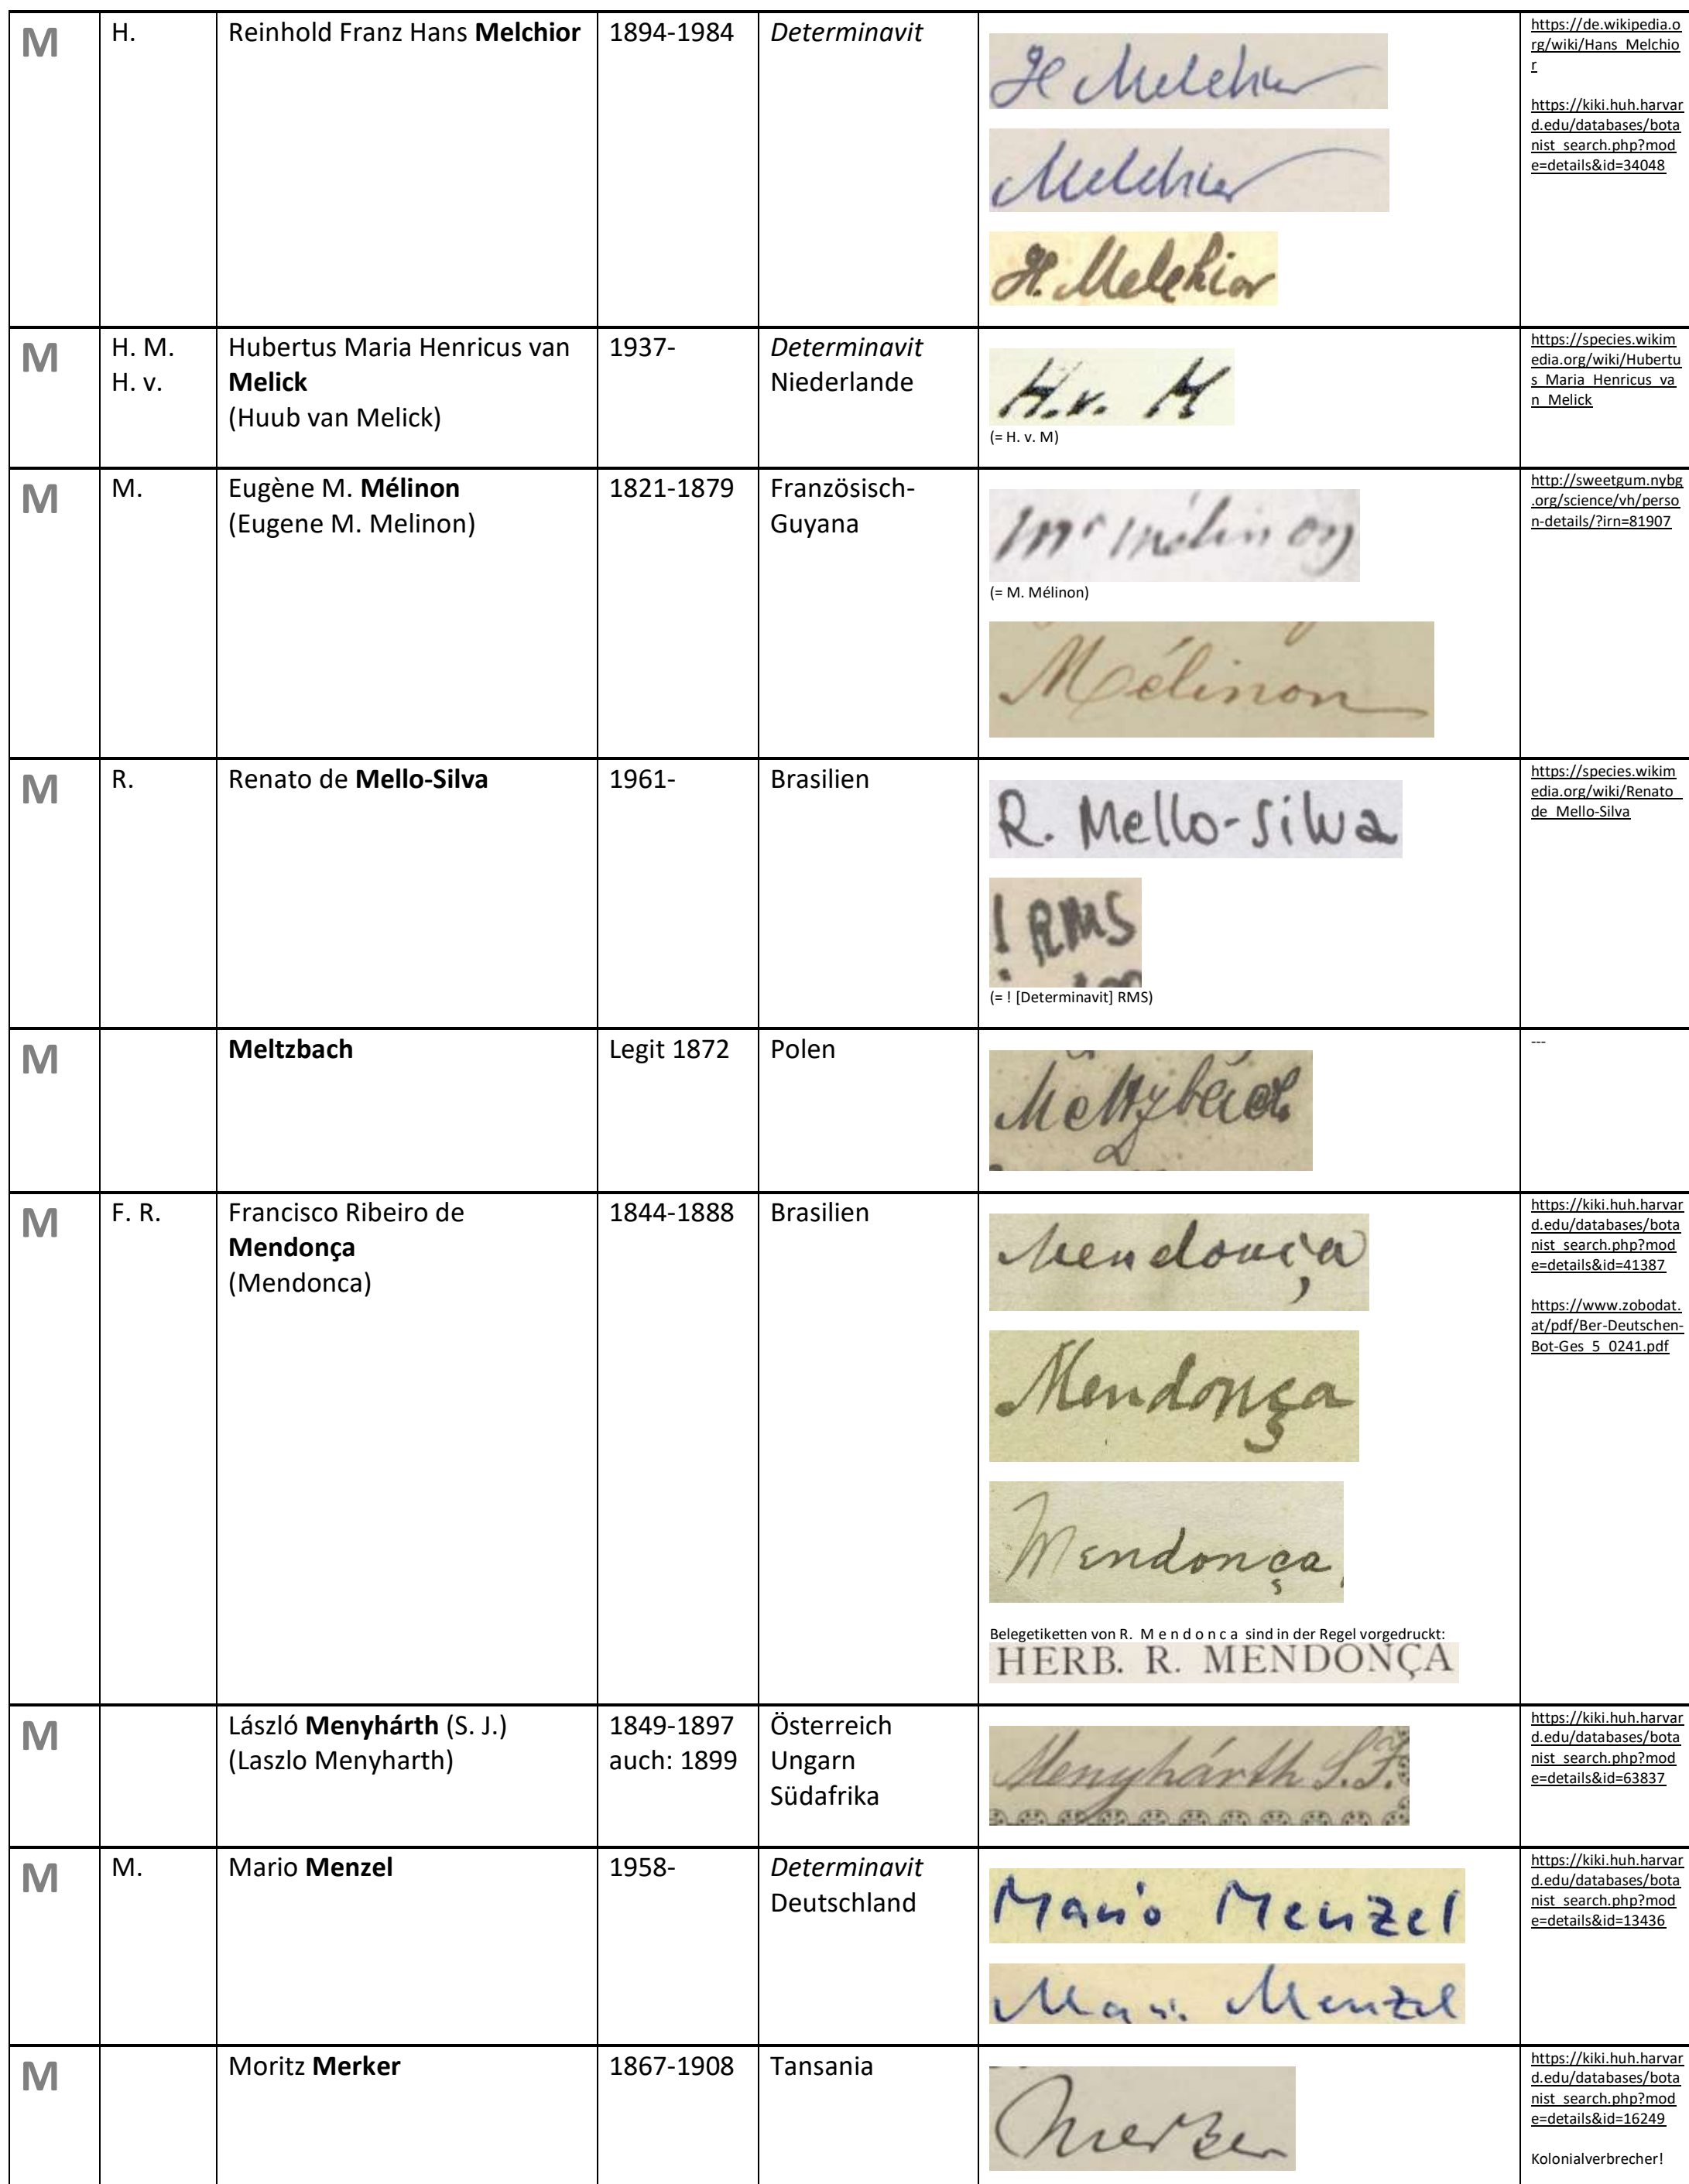 M
H.
Reinhold Franz Hans Melchior
1894-1984
Determinavit
H Melchior
Melchior
H. Melchior
https://de.wikipedia.o
rg/wiki/Hans_Melchio
r
https://kiki.huh.harvar
d.edu/databases/bota
nist_search.php?mod
e=details&id=34048
M
H. M.
H. v.
Hubertus Maria Henricus van
Melick
(Huub van Melick)
1937-
Determinavit
Niederlande
H.v. M
(= H. v. M)
https://species.wikim
edia.org/wiki/Hubertu
s_Maria_Henricus_va
n_Melick
M
M.
Eugène M. Mélinon
(Eugene M. Melinon)
1821-1879
Französisch-
Guyana
Mr Mélinon
(= M. Mélinon)
Mélinon
http://sweetgum.nybg
.org/science/vh/perso
n-details/?irn=81907
M
R.
Renato de Mello-Silva
1961-
Brasilien
R. Mello-Silva
! RMS
(= ! [Determinavit] RMS)
https://species.wikim
edia.org/wiki/Renato_
de_Mello-Silva
M
Meltzbach
Legit 1872
Polen
Meltzbach
---
M
F. R.
Francisco Ribeiro de
Mendonça
(Mendonca)
1844-1888
Brasilien
Mendonça
Mendonça
Mendonça
Belegetiketten von R. M e n d o n c a sind in der Regel vorgedruckt:
HERB. R. MENDONÇA
https://kiki.huh.harvar
d.edu/databases/bota
nist_search.php?mod
e=details&id=41387
https://www.zobodat.
at/pdf/Ber-Deutschen-
Bot-Ges_5_0241.pdf
M
László Menyhárth (S. J.)
(Laszlo Menyharth)
1849-1897
auch: 1899
Österreich
Ungarn
Südafrika
Menyhárth S.J.
https://kiki.huh.harvar
d.edu/databases/bota
nist_search.php?mod
e=details&id=63837
M
M.
Mario Menzel
1958-
Determinavit
Deutschland
Mario Menzel
Mario Menzel
https://kiki.huh.harvar
d.edu/databases/bota
nist_search.php?mod
e=details&id=13436
M
Moritz Merker
1867-1908
Tansania
Merker
https://kiki.huh.harvar
d.edu/databases/bota
nist_search.php?mod
e=details&id=16249
Kolonialverbrecher!